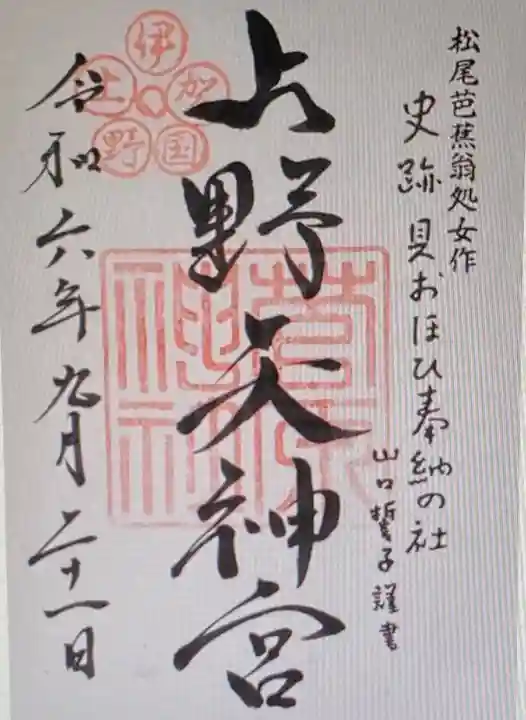 松尾芭蕉翁処女作
史跡 貝おほひ奉納の社
山口誓子謹書
上野天神宮
伊賀国上野
令和六年九月二十一日